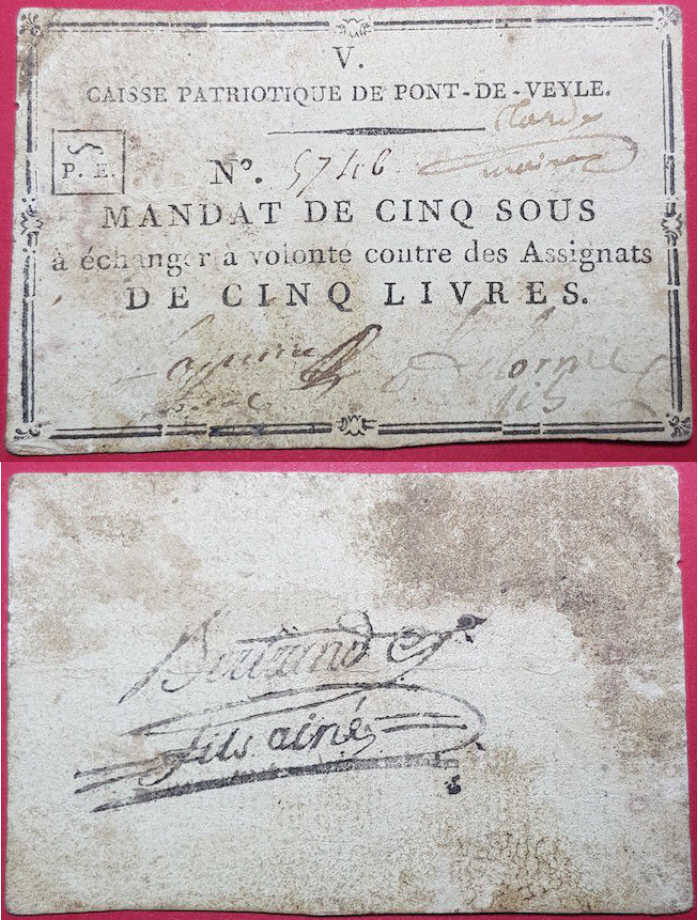 V.
CAISSE PATRIOTIQUE DE PONT-DE-VEYLE.
P. E.
N°. 5746
MANDAT DE CINQ SOUS
à échanger a volonte contre des Assignats
DE CINQ LIVRES.
Delorme
fils
Bertrand
fils ainé